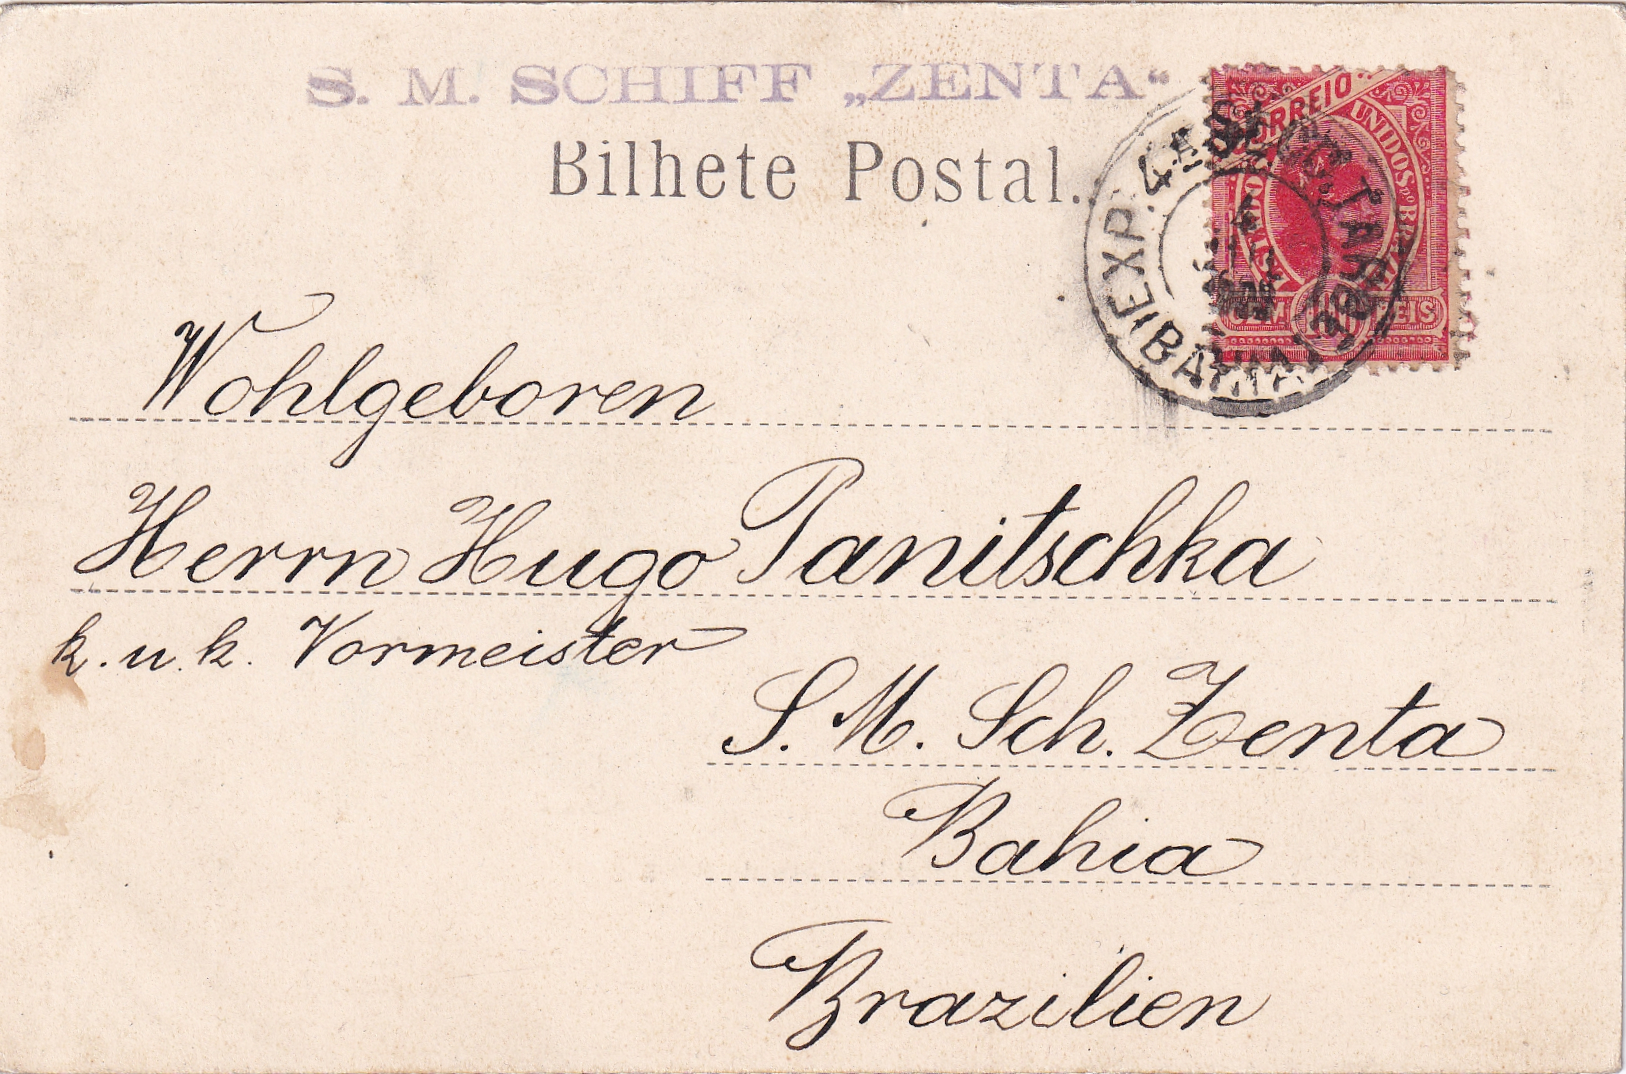 S. M. SCHIFF „ZENTA“
Bilhete Postal.
CORREIO
UNIDOS DO BRAZIL
REIS
EXP.
BAHIA
Wohlgeboren
Herrn Hugo Panitschka
k. u. k. Vormeister
S. M. Sch. Zenta
Bahia
Brazilien